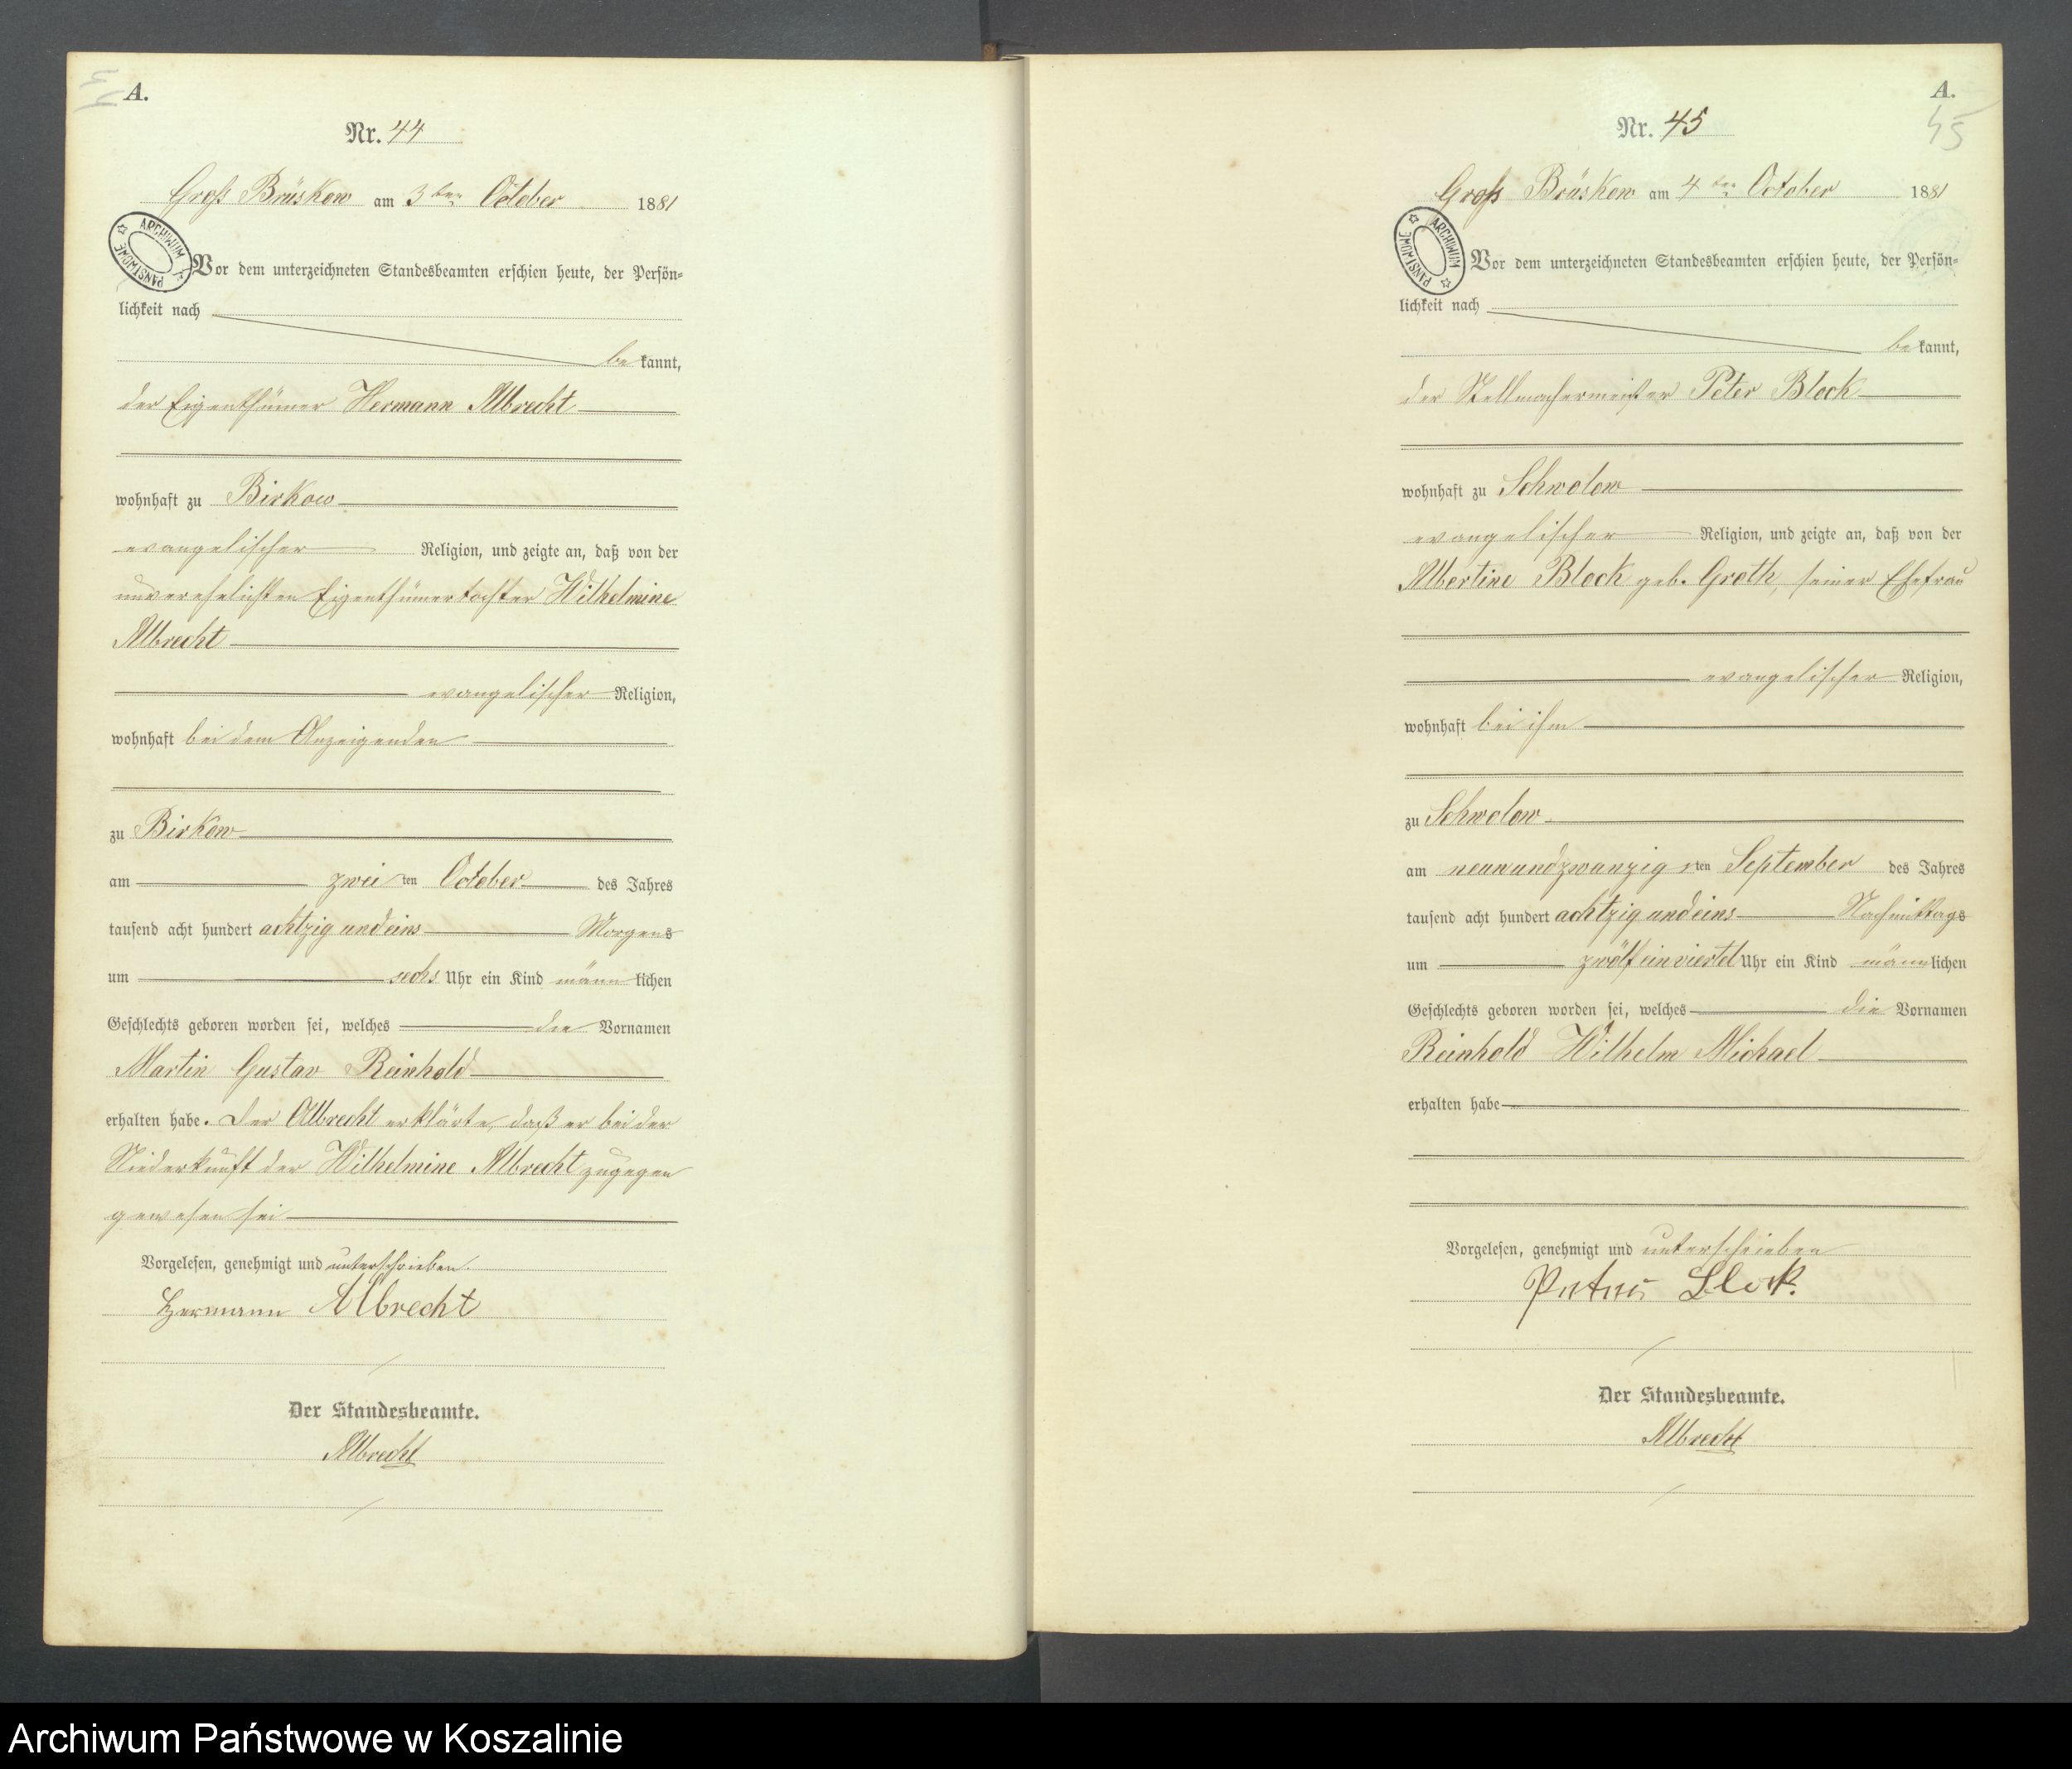 A.
Nr. 44
Groß Brüskow am 3ten October 1881
ARCHIWUM PAŃSTWOWE
Vor dem unterzeichneten Standesbeamten erschien heute, der Persön-
lichkeit nach
bekannt,
der Eigenthümer Hermann Albrecht
wohnhaft zu Birkow
evangelischer Religion, und zeigte an, daß von der
unverehelichten Eigenthümertochter Wilhelmine
Albrecht
evangelischer Religion,
wohnhaft bei dem Anzeigenden
zu Birkow
am zweiten October des Jahres
tausend acht hundert achtzig und eins Morgens
um sechs Uhr ein Kind männlichen
Geschlechts geboren worden sei, welches die Vornamen
Martin Gustav Reinhold
erhalten habe. Der Albrecht erklärte, daß er bei der
Niederkunft der Wilhelmine Albrecht zugegen
gewesen sei
Vorgelesen, genehmigt und unterschrieben.
Hermann Albrecht
Der Standesbeamte.
Albrecht
A.
45
Nr. 45
Groß Brüskow am 4ten October 1881
ARCHIWUM PAŃSTWOWE
Vor dem unterzeichneten Standesbeamten erschien heute, der Persön-
lichkeit nach
bekannt,
der Stellmachermeister Peter Block
wohnhaft zu Schwolow
evangelischer Religion, und zeigte an, daß von der
Albertine Block geb. Groth, seiner Ehefrau
evangelischer Religion,
wohnhaft bei ihm
zu Schwolow
am neunundzwanzigsten September des Jahres
tausend acht hundert achtzig und eins Nachmittags
um zwölf ein viertel Uhr ein Kind männlichen
Geschlechts geboren worden sei, welches die Vornamen
Reinhold Wilhelm Michael
erhalten habe
Vorgelesen, genehmigt und unterschrieben
Peter Block.
Der Standesbeamte.
Albrecht
Archiwum Państwowe w Koszalinie